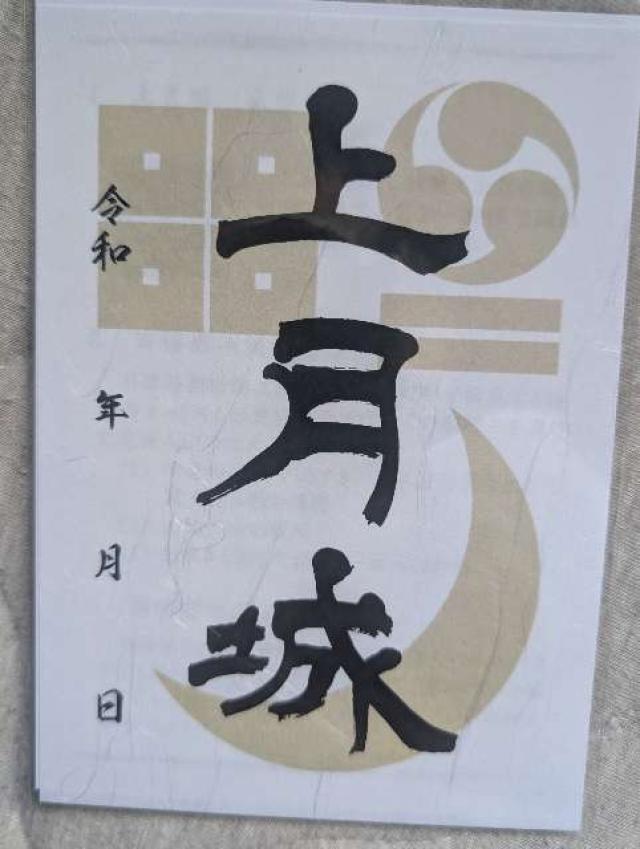 上月城
令和 年 月 日